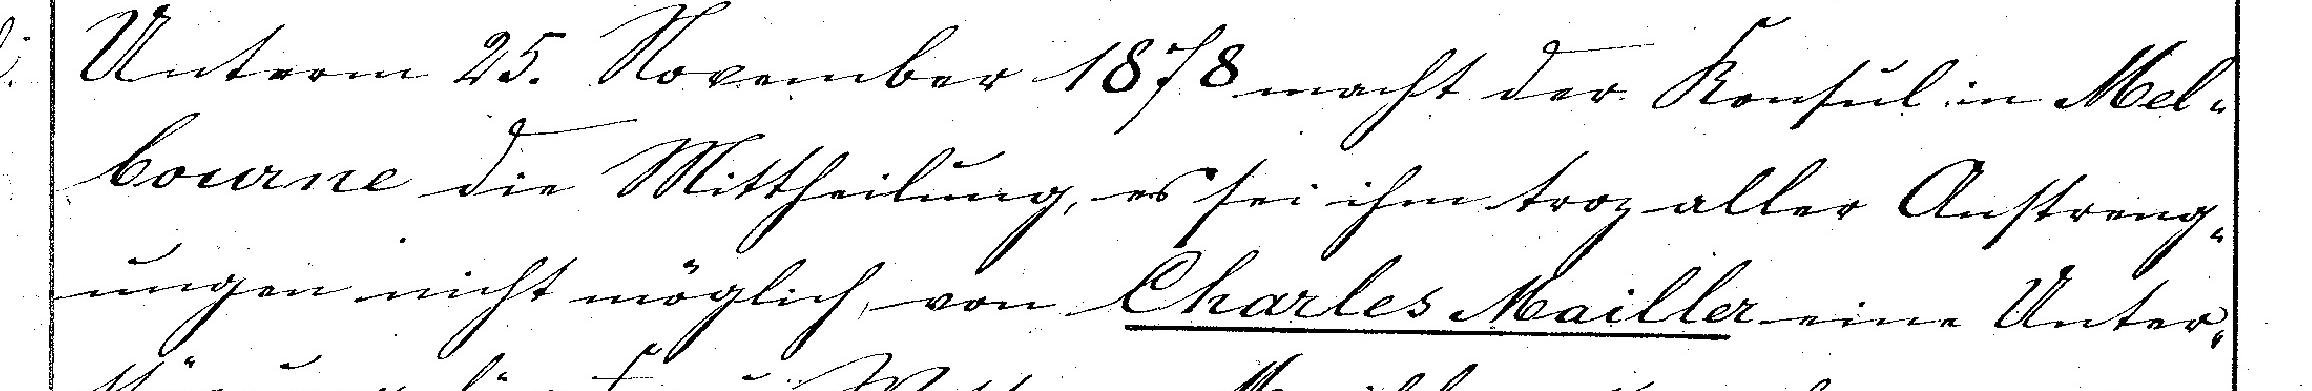 Unterm 25. November 1878 macht der Konsul in Mel-
bourne die Mittheilung, es sei ihm troz aller Anstreng-
ungen nicht möglich, von Charles Mailler eine Unter-